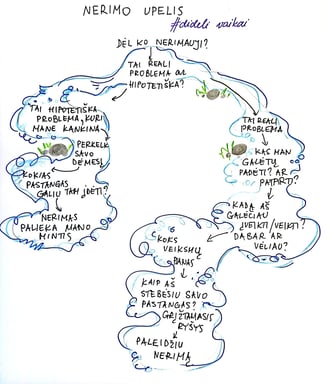 NERIMO UPELIS
#dideli vaikai
DĖL KO NERIMAUJI?
TAI REALI
PROBLEMA AR
HIPOTETIŠKA?
TAI HIPOTETIŠKA
PROBLEMA, KURI
MANE KANKINA
PERKELK
SAVO
DĖMESĮ
KOKIAS
PASTANGAS
GALIU TAM ĮDĖTI?
NERIMAS
PALIEKA MANO
MINTIS
TAI REALI
PROBLEMA
KAS MAN
GALĖTŲ
PADĖTI? AR
PATARTI?
KADA AŠ
GALĖČIAU
ĮVEIKTI/VEIKTI?
DABAR AR
VĖLIAU?
KOKS
VEIKSMŲ
PLANAS
KAIP AŠ
STEBĖSIU SAVO
PASTANGAS?
GRĮŽTAMASIS
RYŠYS
PALEIDŽIU
NERIMĄ